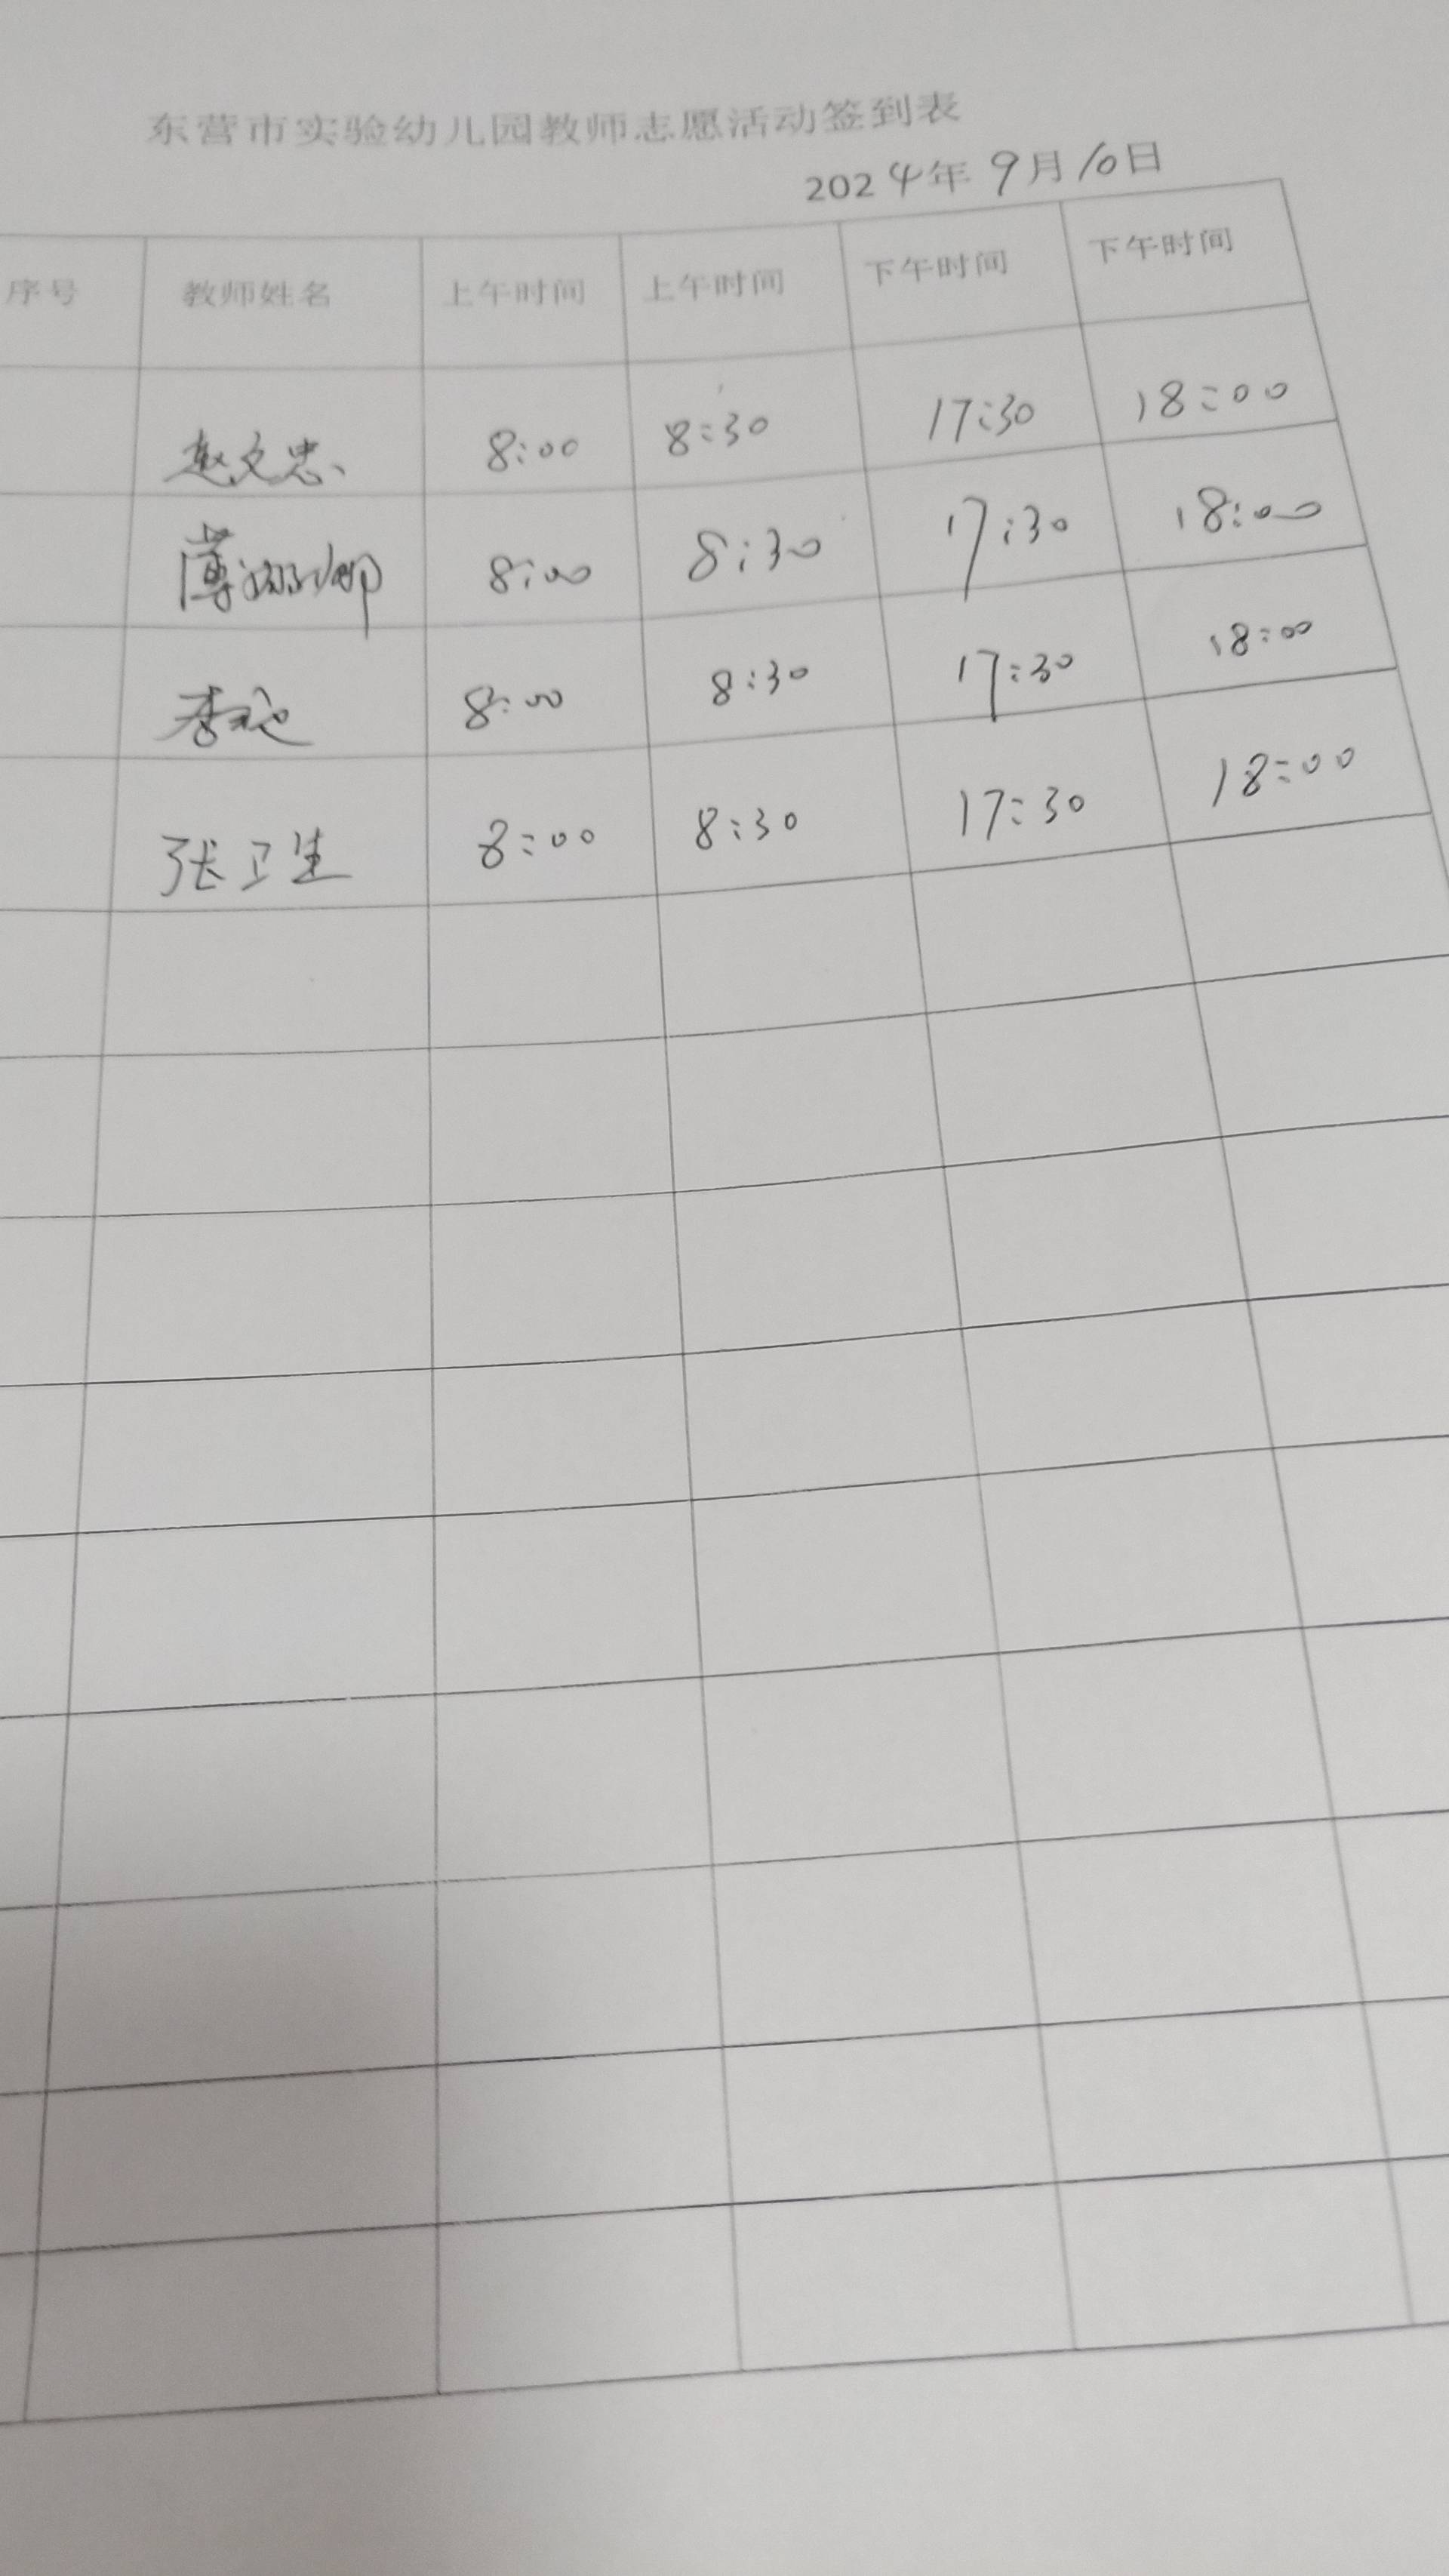 东营市实验幼儿园教师志愿活动签到表
2024年9月10日
序号 教师姓名 上午时间 上午时间 下午时间 下午时间
赵文忠 8:00 8:30 17:30 18:00
薄 娜 8:00 8:30 17:30 18:00
李 8:00 8:30 17:30 18:00
张卫生 8:00 8:30 17:30 18:00